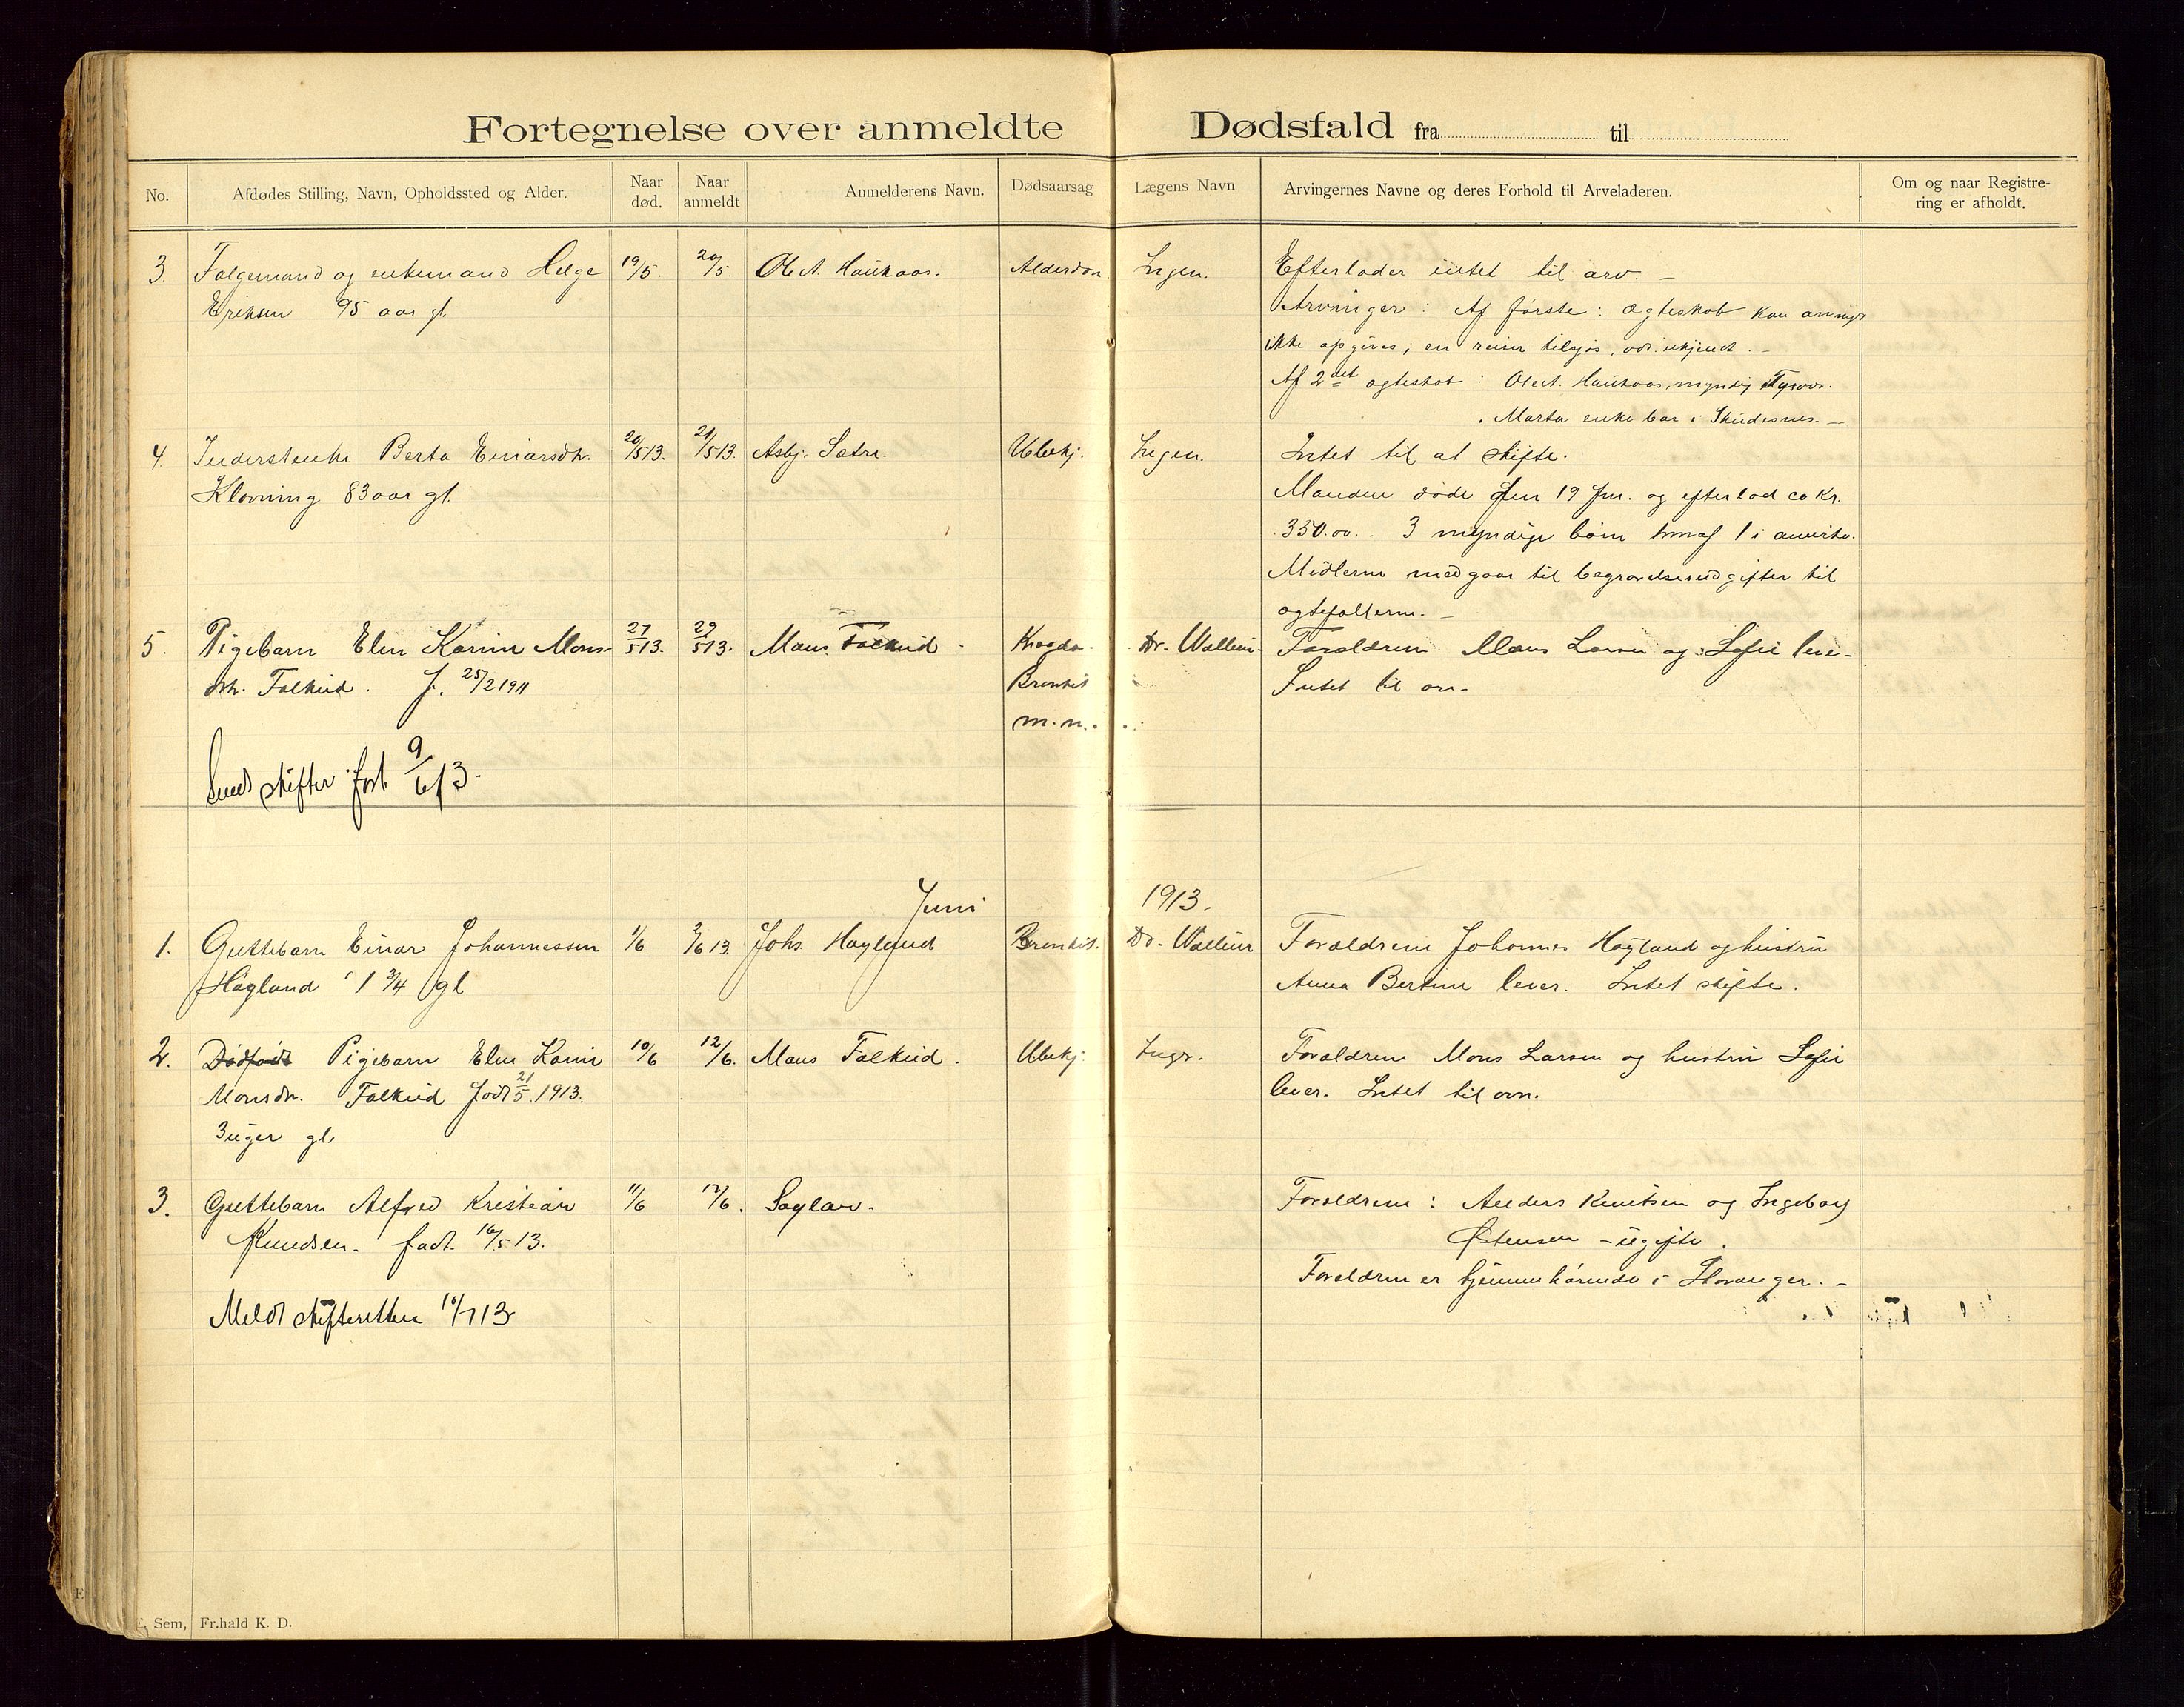 Fortegnelse over anmeldte Dødsfald fra til
No. Afdødes Stilling, Navn, Opholdssted og Alder. Naar død. Naar anmeldt Anmelderens Navn. Dødsaarsag Lægens Navn Arvingernes Navne og deres Forhold til Arveladeren. Om og naar Registrering er afholdt.
3. Folgemand og enkemand Helge 19/5. 20/5. Ole A. Haukaas. Alderdom Ingen. Efterlader intet til arv. –
Eriksen 95 aar gl. Arvinger: Af første: ægteskab kan arvinger
ikke opgives; en reiser tilsjøs, adr. ukjendt. –
Af 2det ægteskab: Ole A. Haukaas, myndig Tysvær.
Marta enke bor i Skudesnes. –
4. Inderstenke Berta Einarsdtr. 20/5 13. 21/5 13. Asbj. Sætre. Ubekj. Ingen. Intet til at skifte.
Klovning 83 aar gl. Manden døde den 19 Jan. og efterlod ca Kr.
350.00. 3 myndige børn hvoraf 1 i amerika.
Midlerne medgaar til begravelsesudgifter til
ægtefællerne. –
5. Pigebarn Elen Karine Mons- 27/5 13. 29/5 13. Mons Falkeid Dr. Wallem. Forældrene Mons Larsen og Sofie lever.
dtr. Falkeid. f. 25/2 1911 Bronkit Intet til arv.
m.m.
Sendt skifter fort 9/6 13.
Juni 1913.
1. Guttebarn Einar Johannessen 1/6 2/6 13. Johs. Høgland Bronkit. Dr. Wallem Forældrene Johannes Høgland og hustru
Høgland 1 3/4 gl Anna Bertine lever. Intet skifte.
2. Dødfødt Pigebarn Elen Karine 10/6 12/6. Mons Falkeid. Ubekj. Ingen. Forældrene Mons Larsen og hustru Sofie
Monsdtr. Falkeid født 21/5. 1913. lever. Intet til arv.
3 uger gl.
3. Guttebarn Alfred Kristian 11/6 12/6. Forældrene: Anders Knutsen og Ingeborg
Knudsen. født. 16/5 13. Østensen – ugifte.
Forældrene er hjemmehørende i Stavanger. –
Meldt skifteretten 10/7 13
E. Sem, Fr.hald K. D.